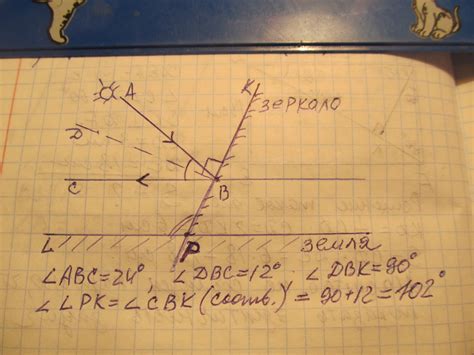 A
K
зеркало
D
C
B
L
P
земля
∠ABC=24°, ∠DBC=12° ∠DBK=90°
∠LPK=∠CBK (соотв.) = 90+12=102°